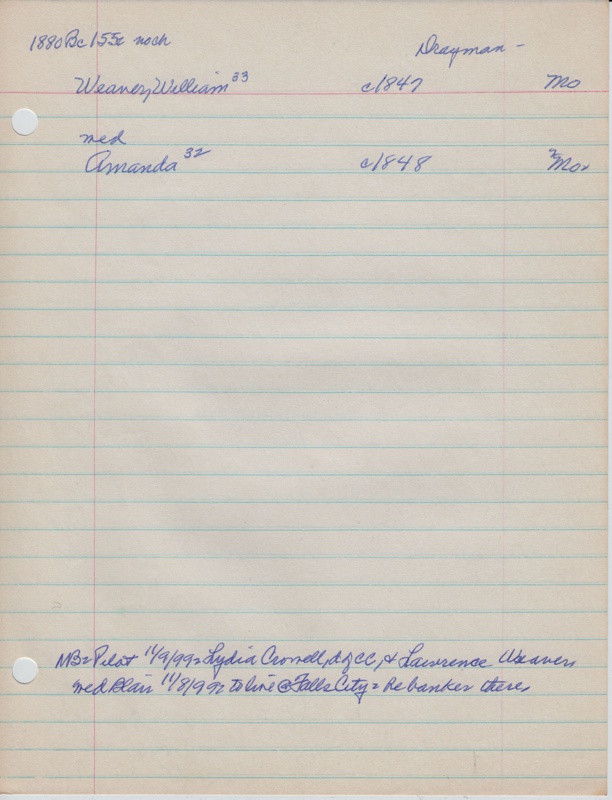 1880 Bc 155z noch
Drayman -
Weaver, William 33 c1847 Mo
med
Amanda 32 c1848 Mo
NB= Pilot 11/9/99= Lydia Crowell, d of CC, & Lawrence Weaver,
med Blair 11/8/99= to live @ Falls City= he banker there,